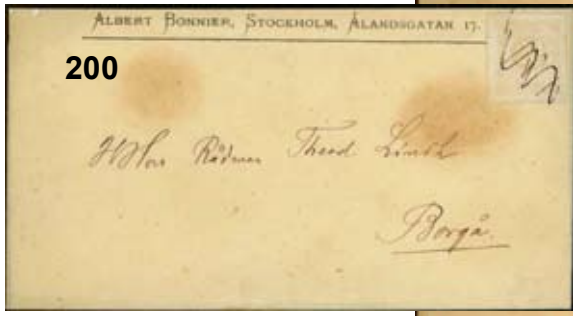 ALBERT BONNIER, STOCKHOLM, ÅLANDSGATAN 17.
200
Rådman Theod.
Borgå.